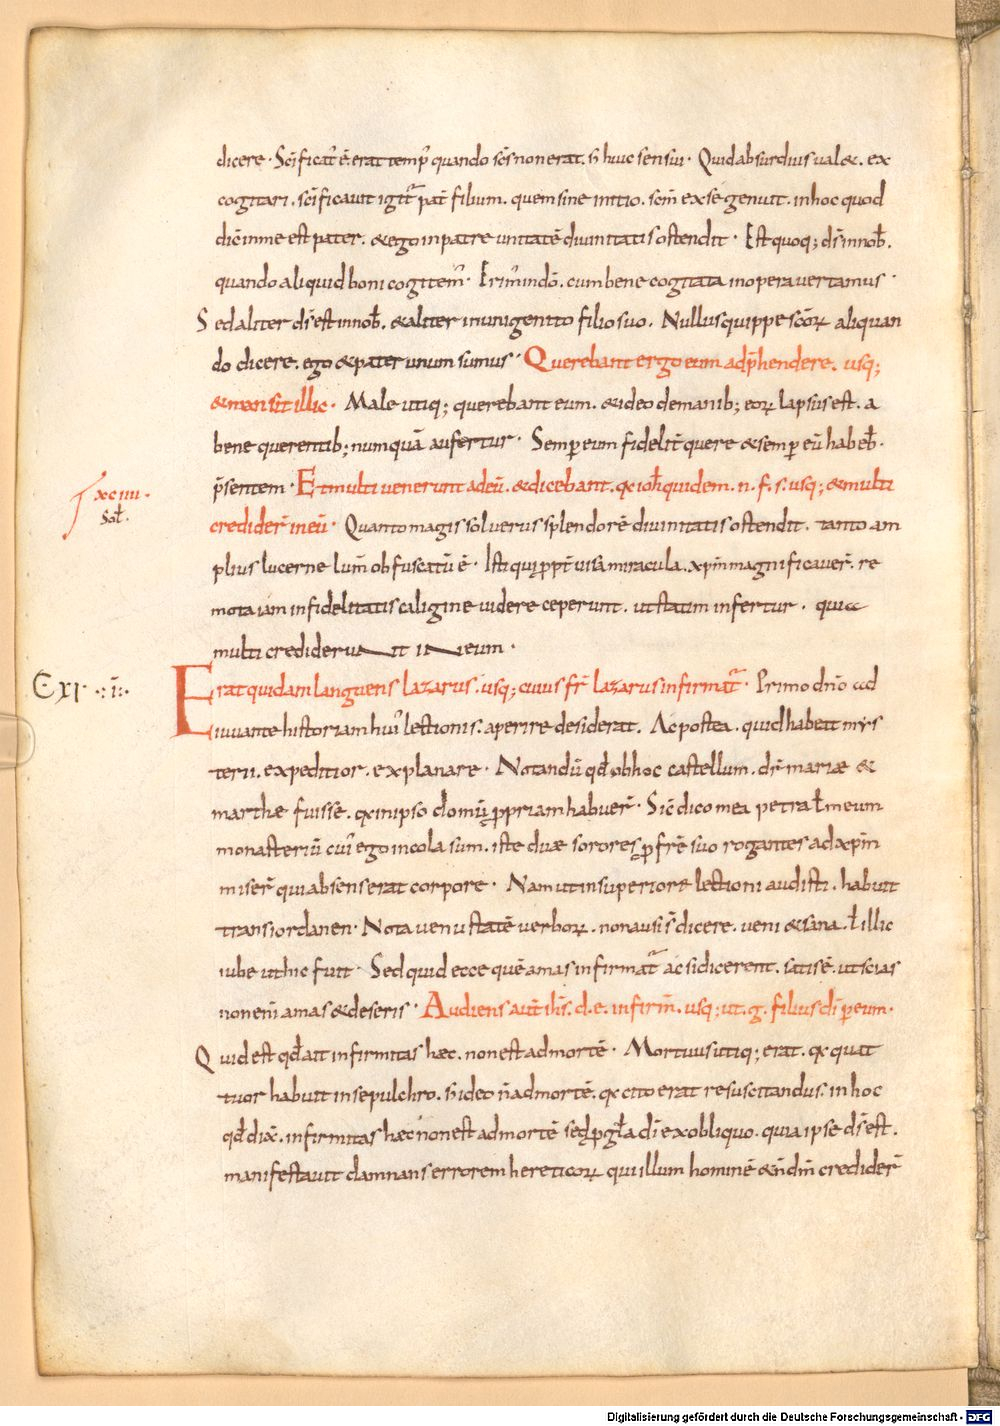 dicere · Scīficat' ē. erat temp' quando scs̄ non erat. s̄ huic sensui · Quid absurdius ual&. ex
cogitari. scīficauit igit' pat̄ filium. quem sine initio. scm̄ ex se genuit. in hoc quod
dic̄ in me est pater. & ego in patre unitatē diuinitatis ostendit · Est quoq; ds̄ in nob̄.
quando aliquid boni cogitem' · Erim' in dō. cum bene cogitata in opera uertamus ·
Sed aliter ds̄ est in nob̄. & aliter in unigenito filio suo. Nullus quippe scōꝝ aliquan
do dicere. ego & pater unum sumus · Querebant ergo eum adp̄hendere. usq;
& mansit illic · Male utiq; querebant eum. & ideo de manib; eoꝝ lapsus est. a
bene querentib; numquā aufertur · Semꝑ eum fidelit̄ quere & semꝑ eū habeb̄.
p̄sentem · Et multi uenerunt ad eū. & dicebant. qx ioh̄ quidem. n. f. s. usq; & multi
credider̄ in eū · Quanto magis sol uerus splendorē diuinitatis ostendit. tanto am
plius lucerne lum̄ obfuscatū ē · Isti qui ꝓpt̄ uisa miracula. xpm̄ magnificauer̄. re
mota iam infidelitatis caligine uidere ceperunt. ut statim infertur. quia
multi crediderunt in eum ·
Erat quidam languens lazarus. usq; cuius fr̄ lazarus infirmat' · Primo dn̄o ad
iuuante historiam hui' lectionis. aperire desiderat. Ac postea. quid habeat mys
terii. expeditior. explanare · Notandū qd̄ ob hoc castellum. dr̄ mariæ &
marthæ fuisse. qx in ipso domū ꝓpriam habuer̄ · Sic̄ dico mea petra ł meum
monasteriū cui' ego incola sum. iste duæ sorores ꝓ frē suo rogantes ad xpm̄
miser̄ qui absens erat corpore · Nam ut in superiore lectioni audisti. habuit
trans iordanen · Nota uenustatē uerboꝝ. non ausi s̄ dicere. ueni & sana. ł illic
iube ut hic fuit · Sed quid ecce quē amas infirmat' ac si dicerent. satis ē. ut scias
non eni amas & deseris · Audiens aut̄ ih̄s. d. e. infirm̄. usq; ut. g. filius dī ꝑ eum ·
Quid est qd̄ ait infirmitas hæc. non est ad mortē · Mortuus utiq; erat. qx quat
tuor habuit in sepulchro. s̄ ideo n̄ ad mortē. qx cito erat resuscitandus. in hoc
qd̄ dix̄. infirmitas hæc non est ad mortē sed ꝓ gl̄a dī ex obliquo. quia ipse ds̄ est.
manifestauit damnans errorem hereticoꝝ qui illum hominē & n̄ dm̄ credider̄
xciiii ·
Sol̄.
Exp · ii ·
Digitalisierung gefördert durch die Deutsche Forschungsgemeinschaft - DFG